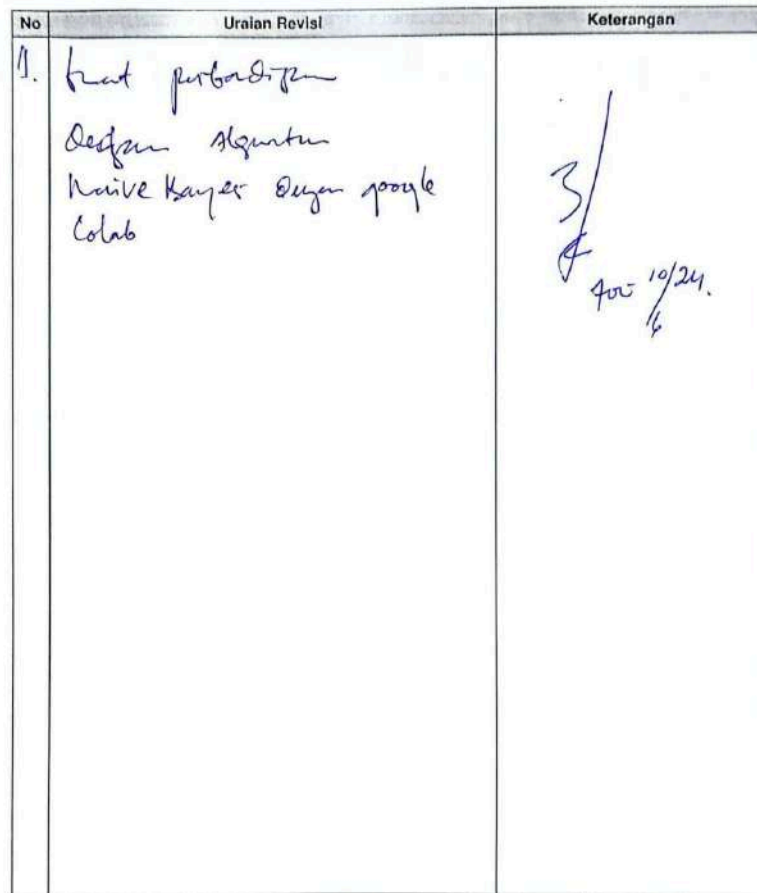 No Uraian Revisi Keterangan
1. buat perbandingan
dengan Algoritma
Naive Bayes dengan google
Colab
10/24.
6